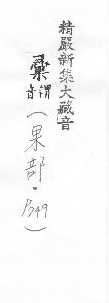 精嚴新集大藏音
彙謂音（果部.P349）